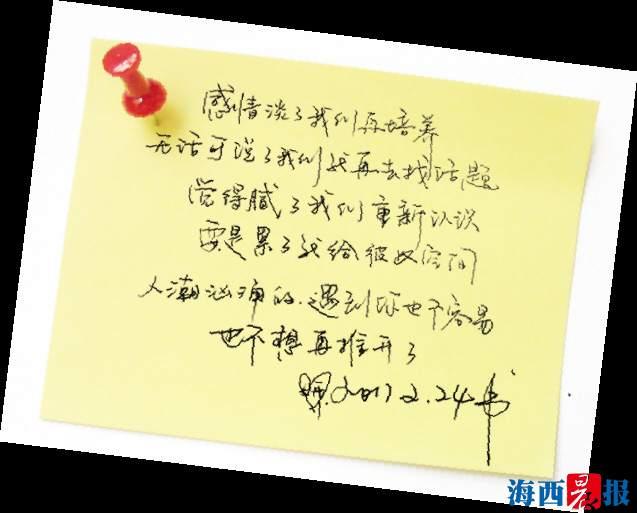 感情淡了我们再培养
无话可说了我们就再去找话题
觉得腻了我们重新认识
要是累了就给彼此空间
人潮汹涌的.遇到你也不容易
也不想再推开了
2017.2.24书
海西晨报